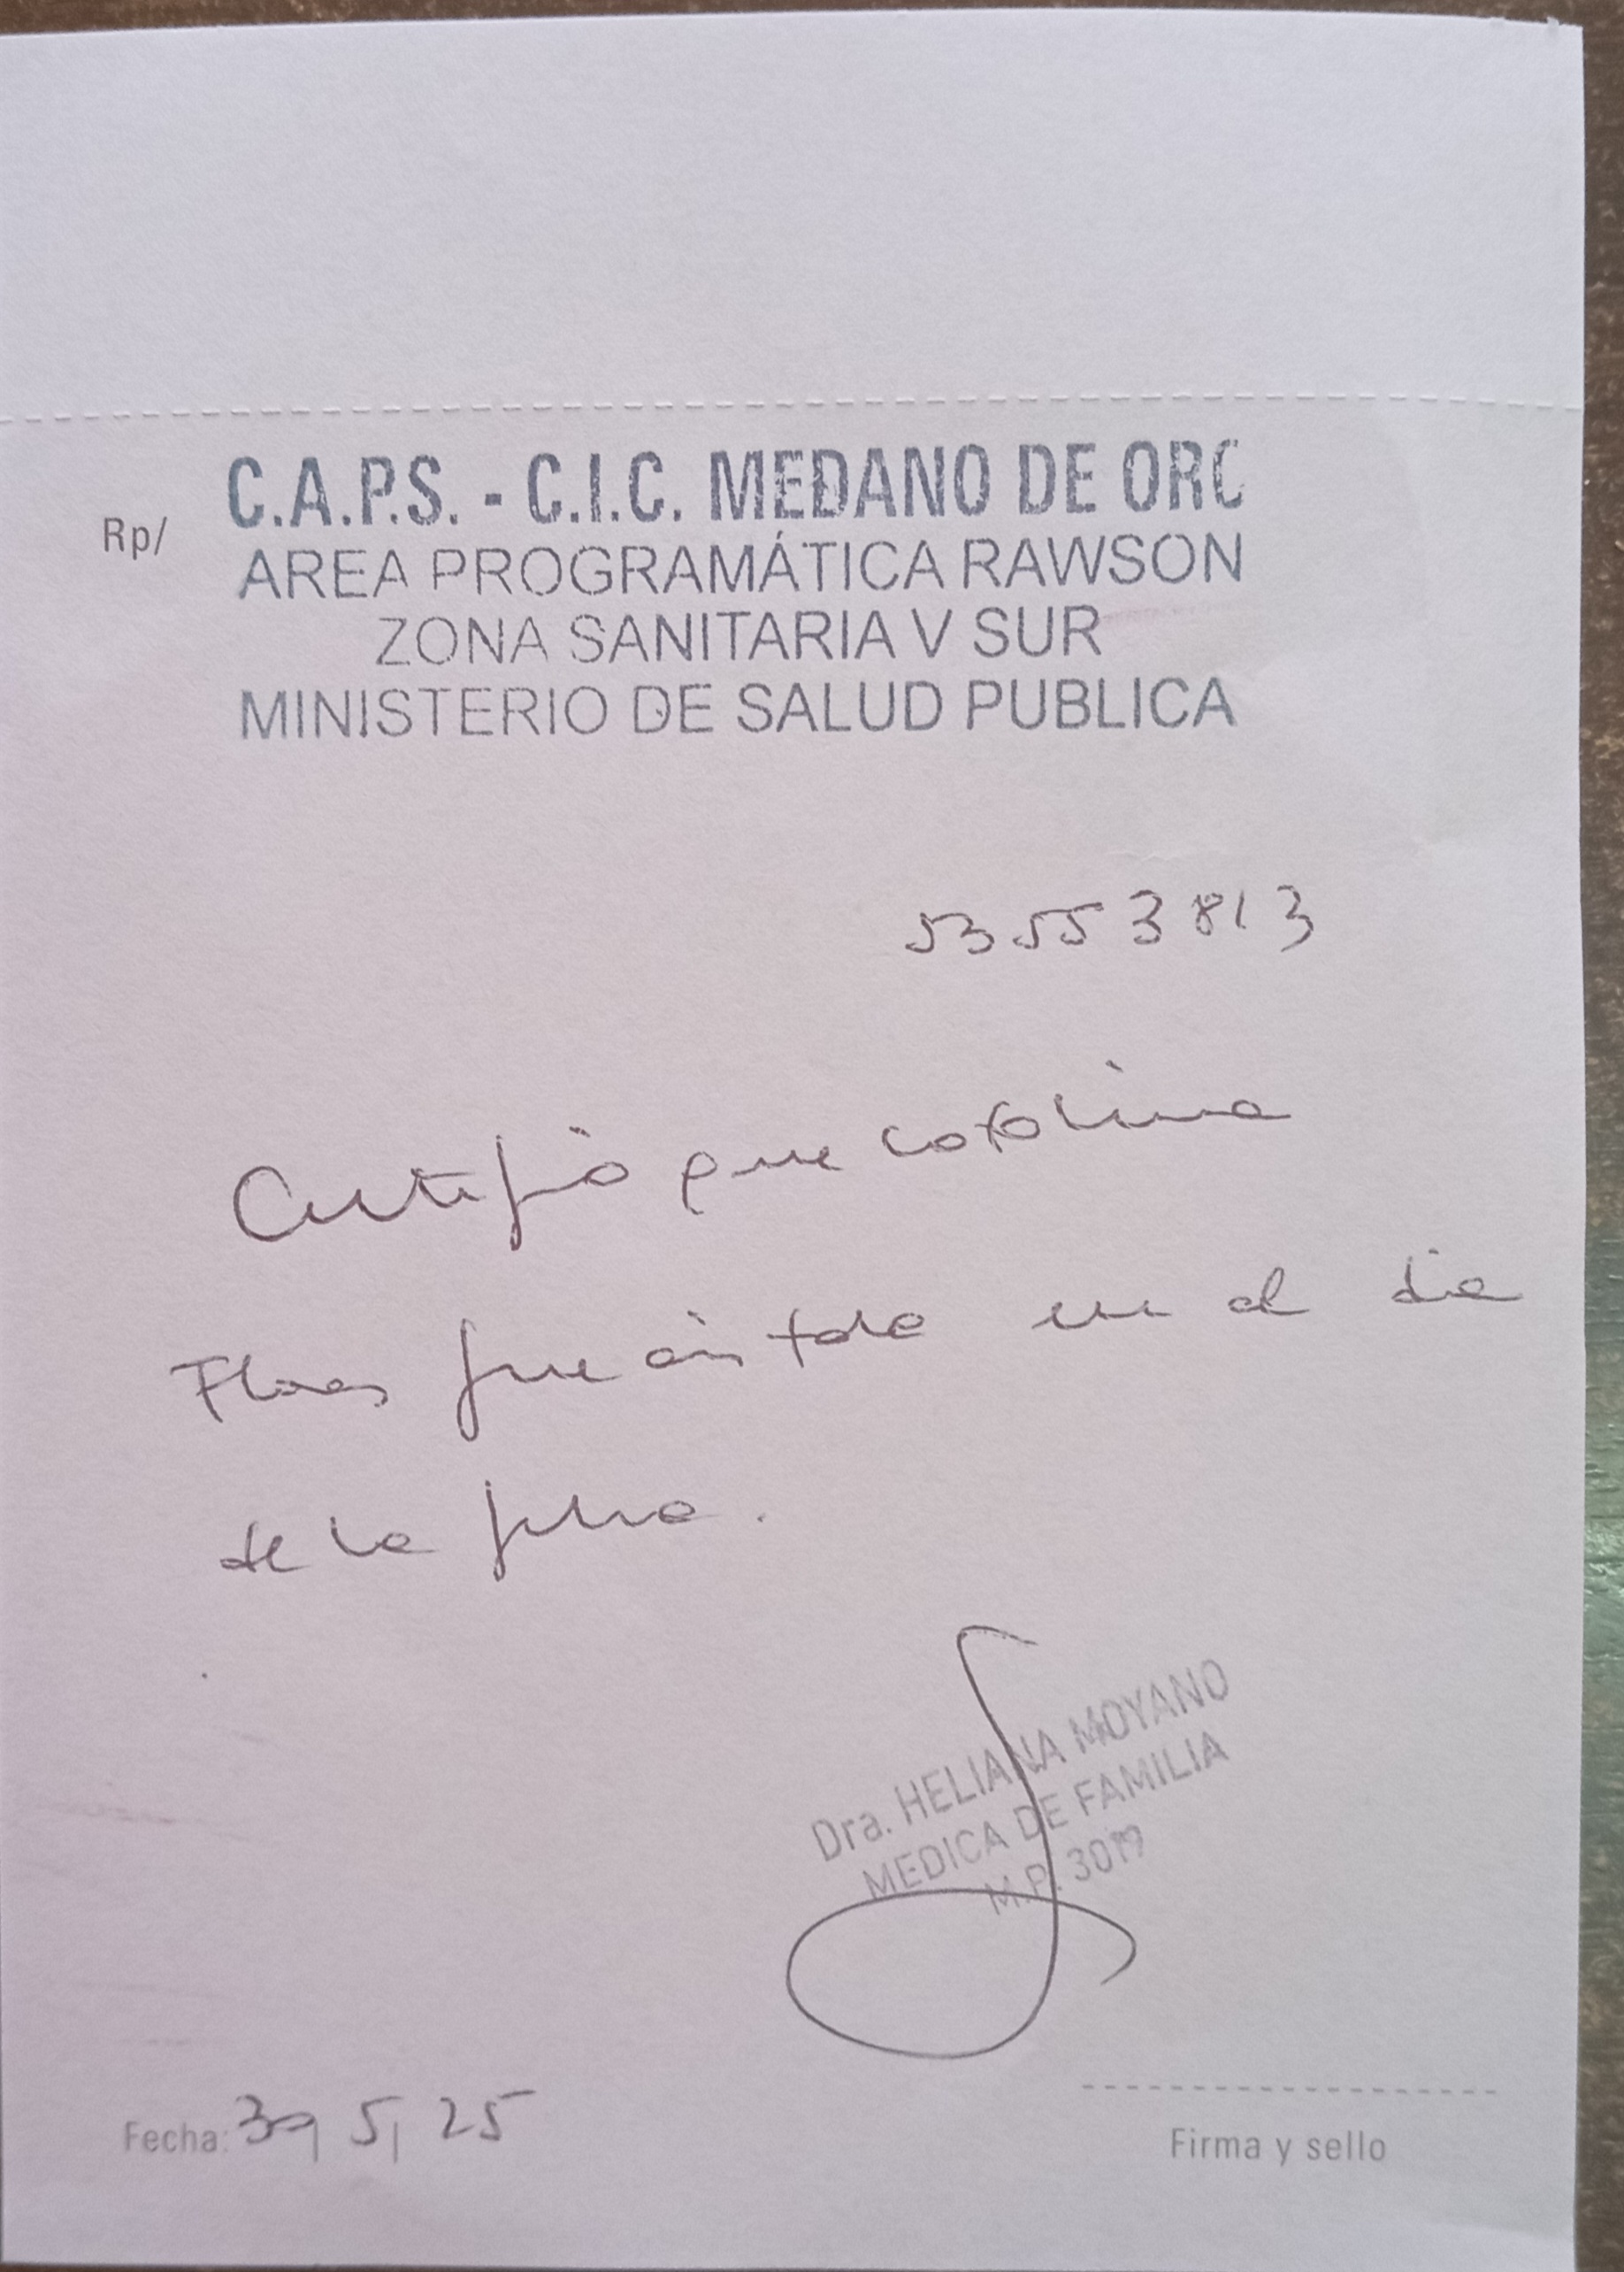 C.A.P.S. - C.I.C. MEDANO DE ORO
Rp/
AREA PROGRAMÁTICA RAWSON
ZONA SANITARIA V SUR
MINISTERIO DE SALUD PUBLICA
53553813
Certifico que Catalina
Flores fue asistida en el dia
de la fecha.
Dra. HELIANA MOYANO
MEDICA DE FAMILIA
M.P. 3019
Fecha: 30, 5, 25
Firma y sello